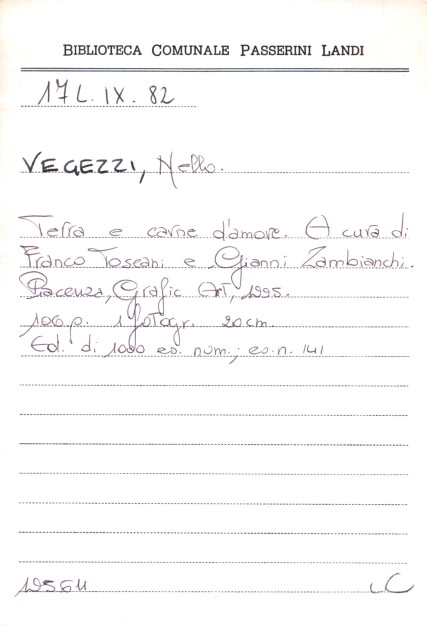 BIBLIOTECA COMUNALE PASSERINI LANDI
17 L. IX. 82
VEGEZZI, Nello.
Terra e carne d'amore. A cura di
Franco Toscani e Gianni Zambianchi.
Piacenza, Grafic Art, 1995.
106 p. 1 fotogr. 20 cm.
Ed. di 1000 es. num.; es. n. 141
LC